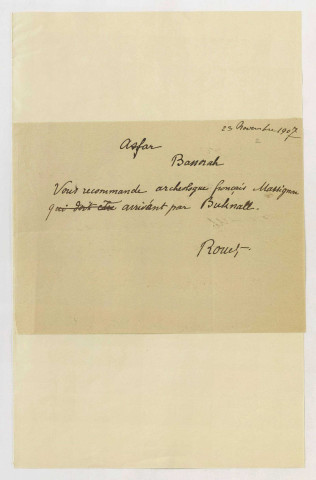 23 Novembre 1907
Asfar
Bassorah
Vous recommande archéologue français Massignon
qui doit être arrivant par Buknall.
Rouet